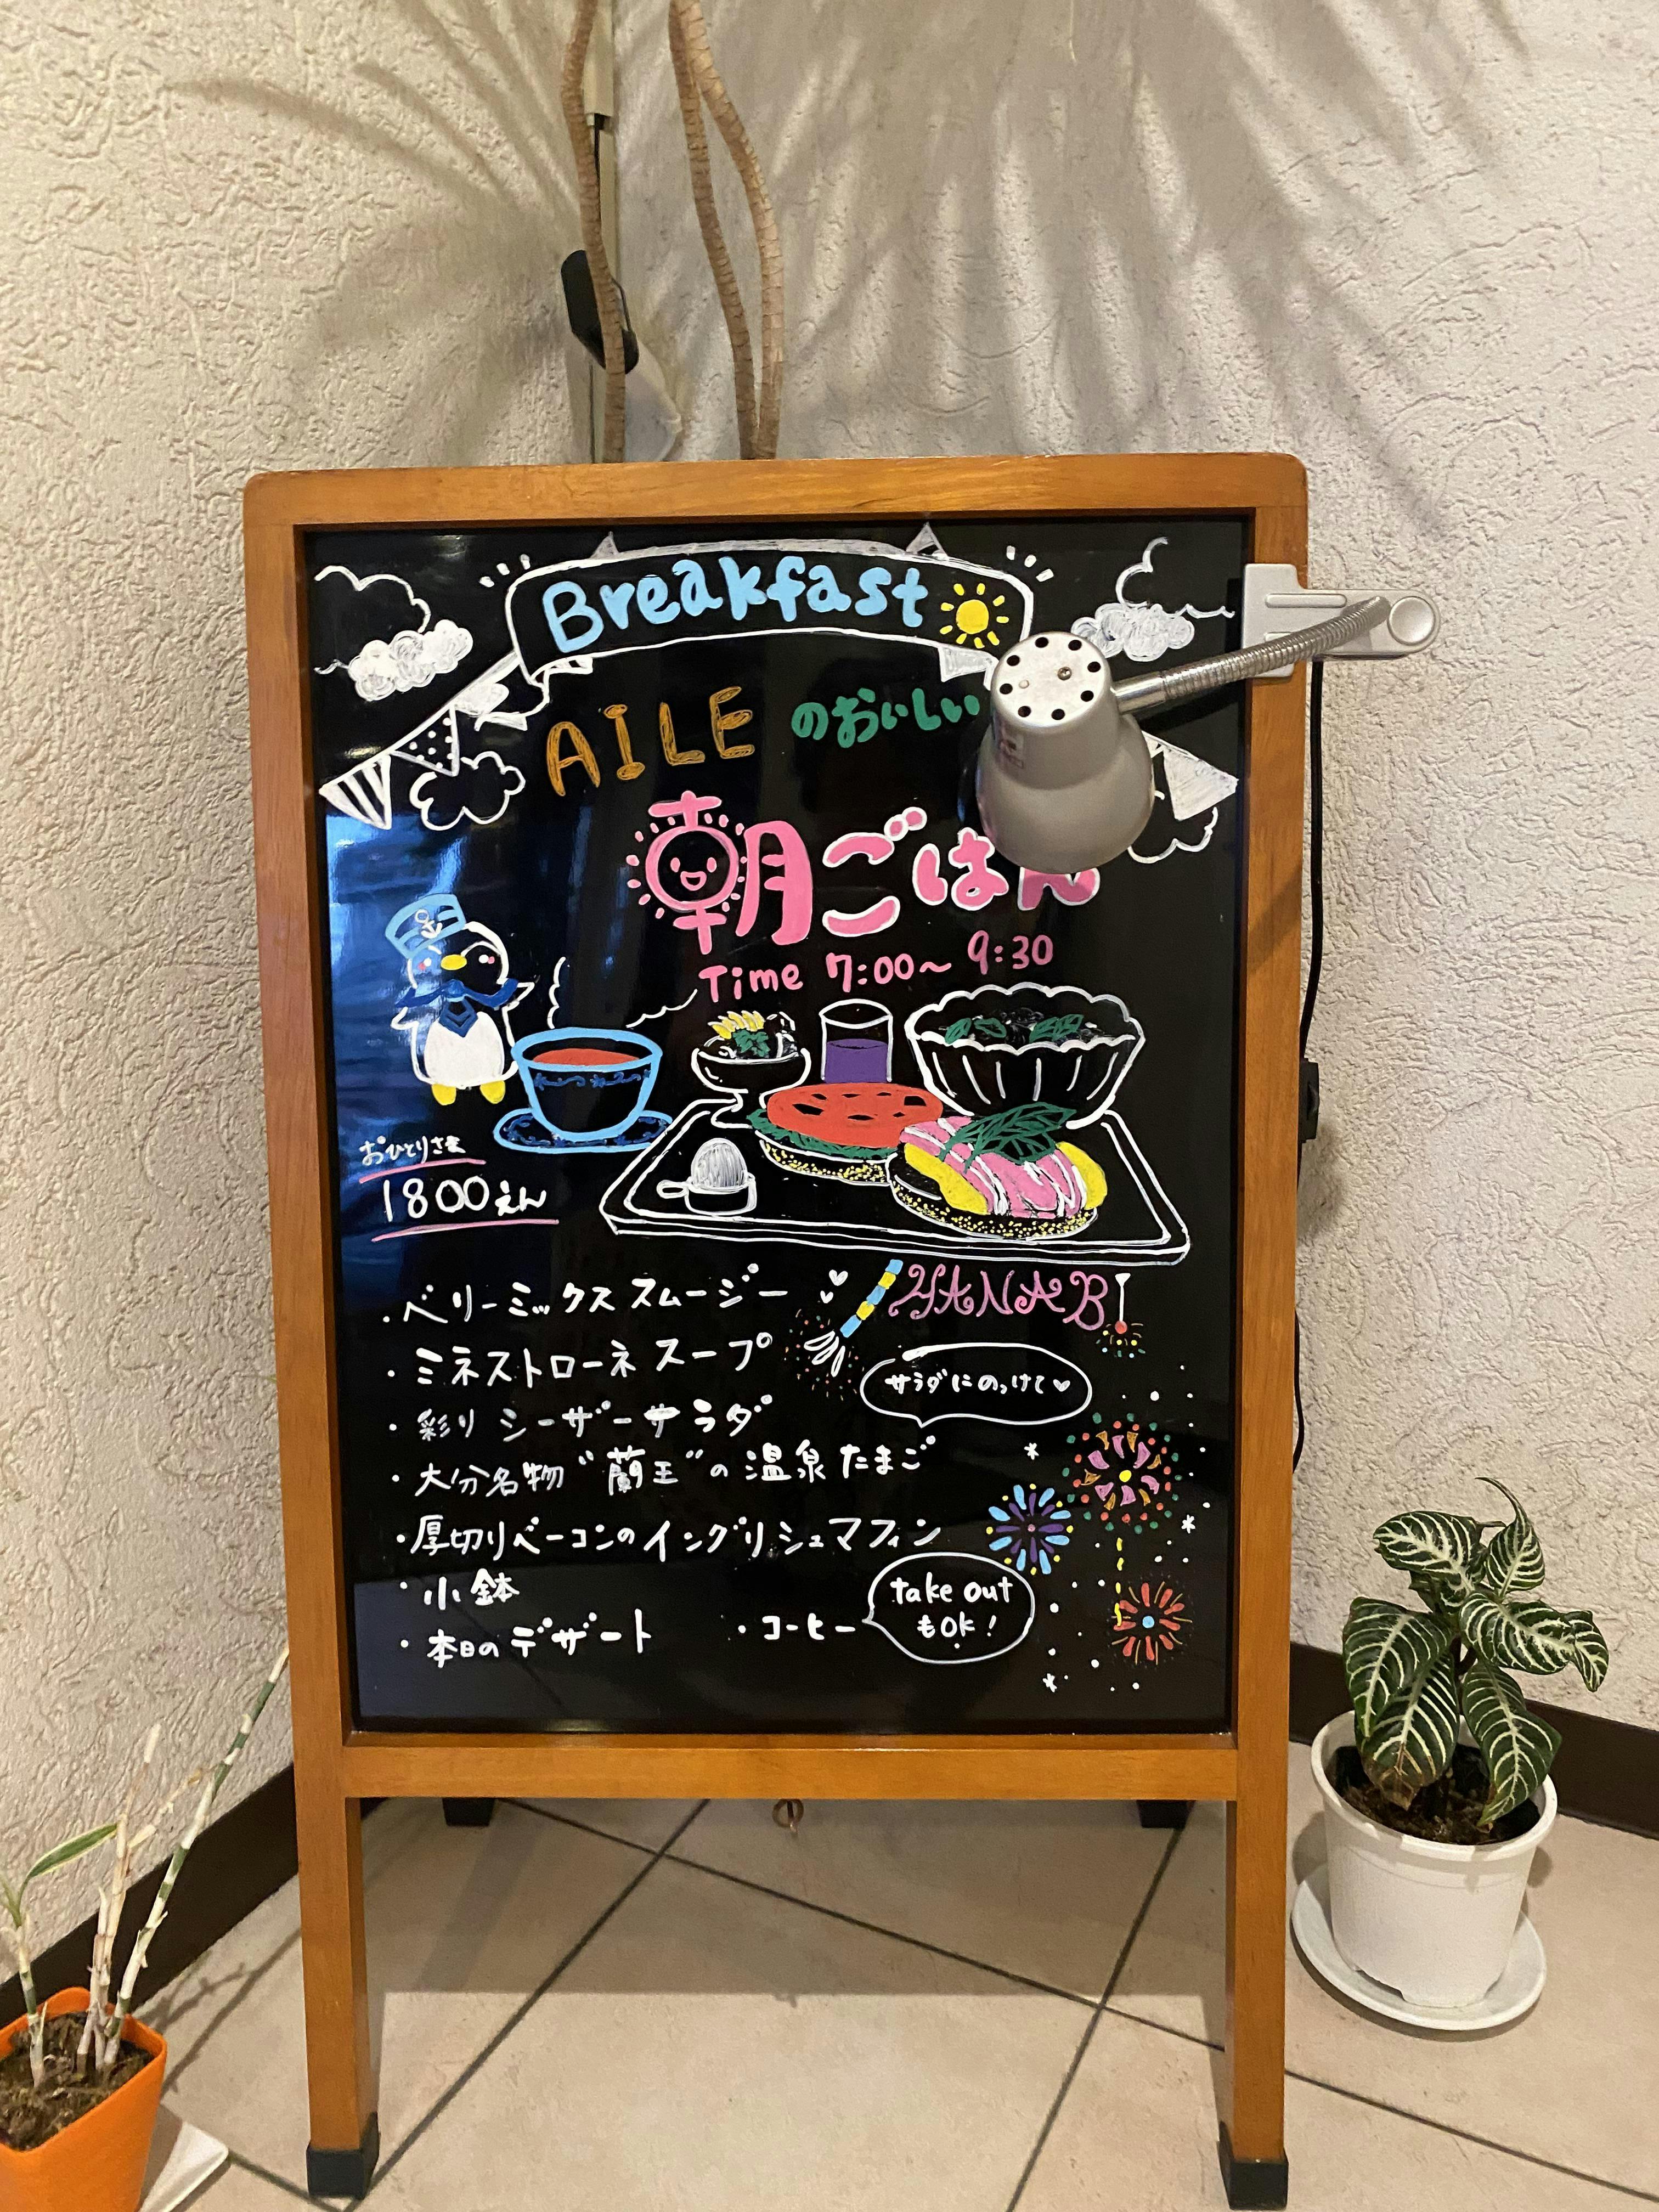 Breakfast
AILE のおいしい
朝ごはん
Time 7:00～9:30
おひとりさま
1800えん
・ベリーミックス スムージー
YANAB
・ミネストローネ スープ
サラダにのっけて♡
・彩り シーザーサラダ
・大分名物"蘭王"の温泉たまご
・厚切りベーコンのイングリッシュマフィン
・小鉢
take out
もOK!
・本日のデザート ・コーヒー